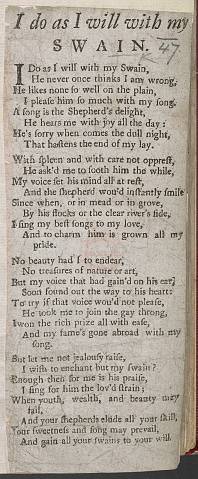 I do as I will with my
SWAIN.
47
I Do as I will with my Swain,
He never once thinks I am wrong,
He likes none so well on the plain,
I please him so much with my song.
A song is the Shepherd's delight,
He hears me with joy all the day:
He's sorry when comes the dull night,
That hastens the end of my lay.
With spleen and with care not opprest,
He ask'd me to sooth him the while,
My voice set his mind all at rest,
And the shepherd wou'd instantly smile
Since when, or in mead or in grove,
By his flocks or the clear river's side,
I sing my best songs to my love,
And to charm him is grown all my
pride.
No beauty had I to endear,
No treasures of nature or art,
But my voice that had gain'd on his ear,
Soon found out the way to his heart:
To try if that voice wou'd not please,
He took me to join the gay throng,
I won the rich prize all with ease,
And my fame's gone abroad with my
song.
But let me not jealousy raise,
I wish to enchant but my swain?
Enough then for me is his praise,
I sing for him the lov'd strain;
When youth, wealth, and beauty may
fail,
And your shepherds elude all your skill,
Your sweetness and song may prevail,
And gain all your swains to your will.